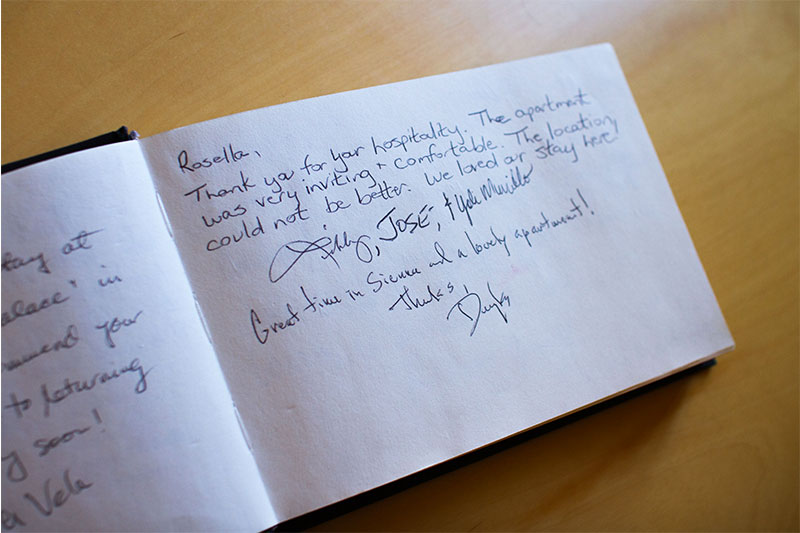 tay at
alace" in
mmend your
to returning
soon!
Vela
Rosella,
Thank you for your hospitality. The apartment
was very inviting + comfortable. The location
could not be better. We loved our stay here!
JOSÉ, + Murillo
Great time in Sienna and a lovely apartment!
Thanks